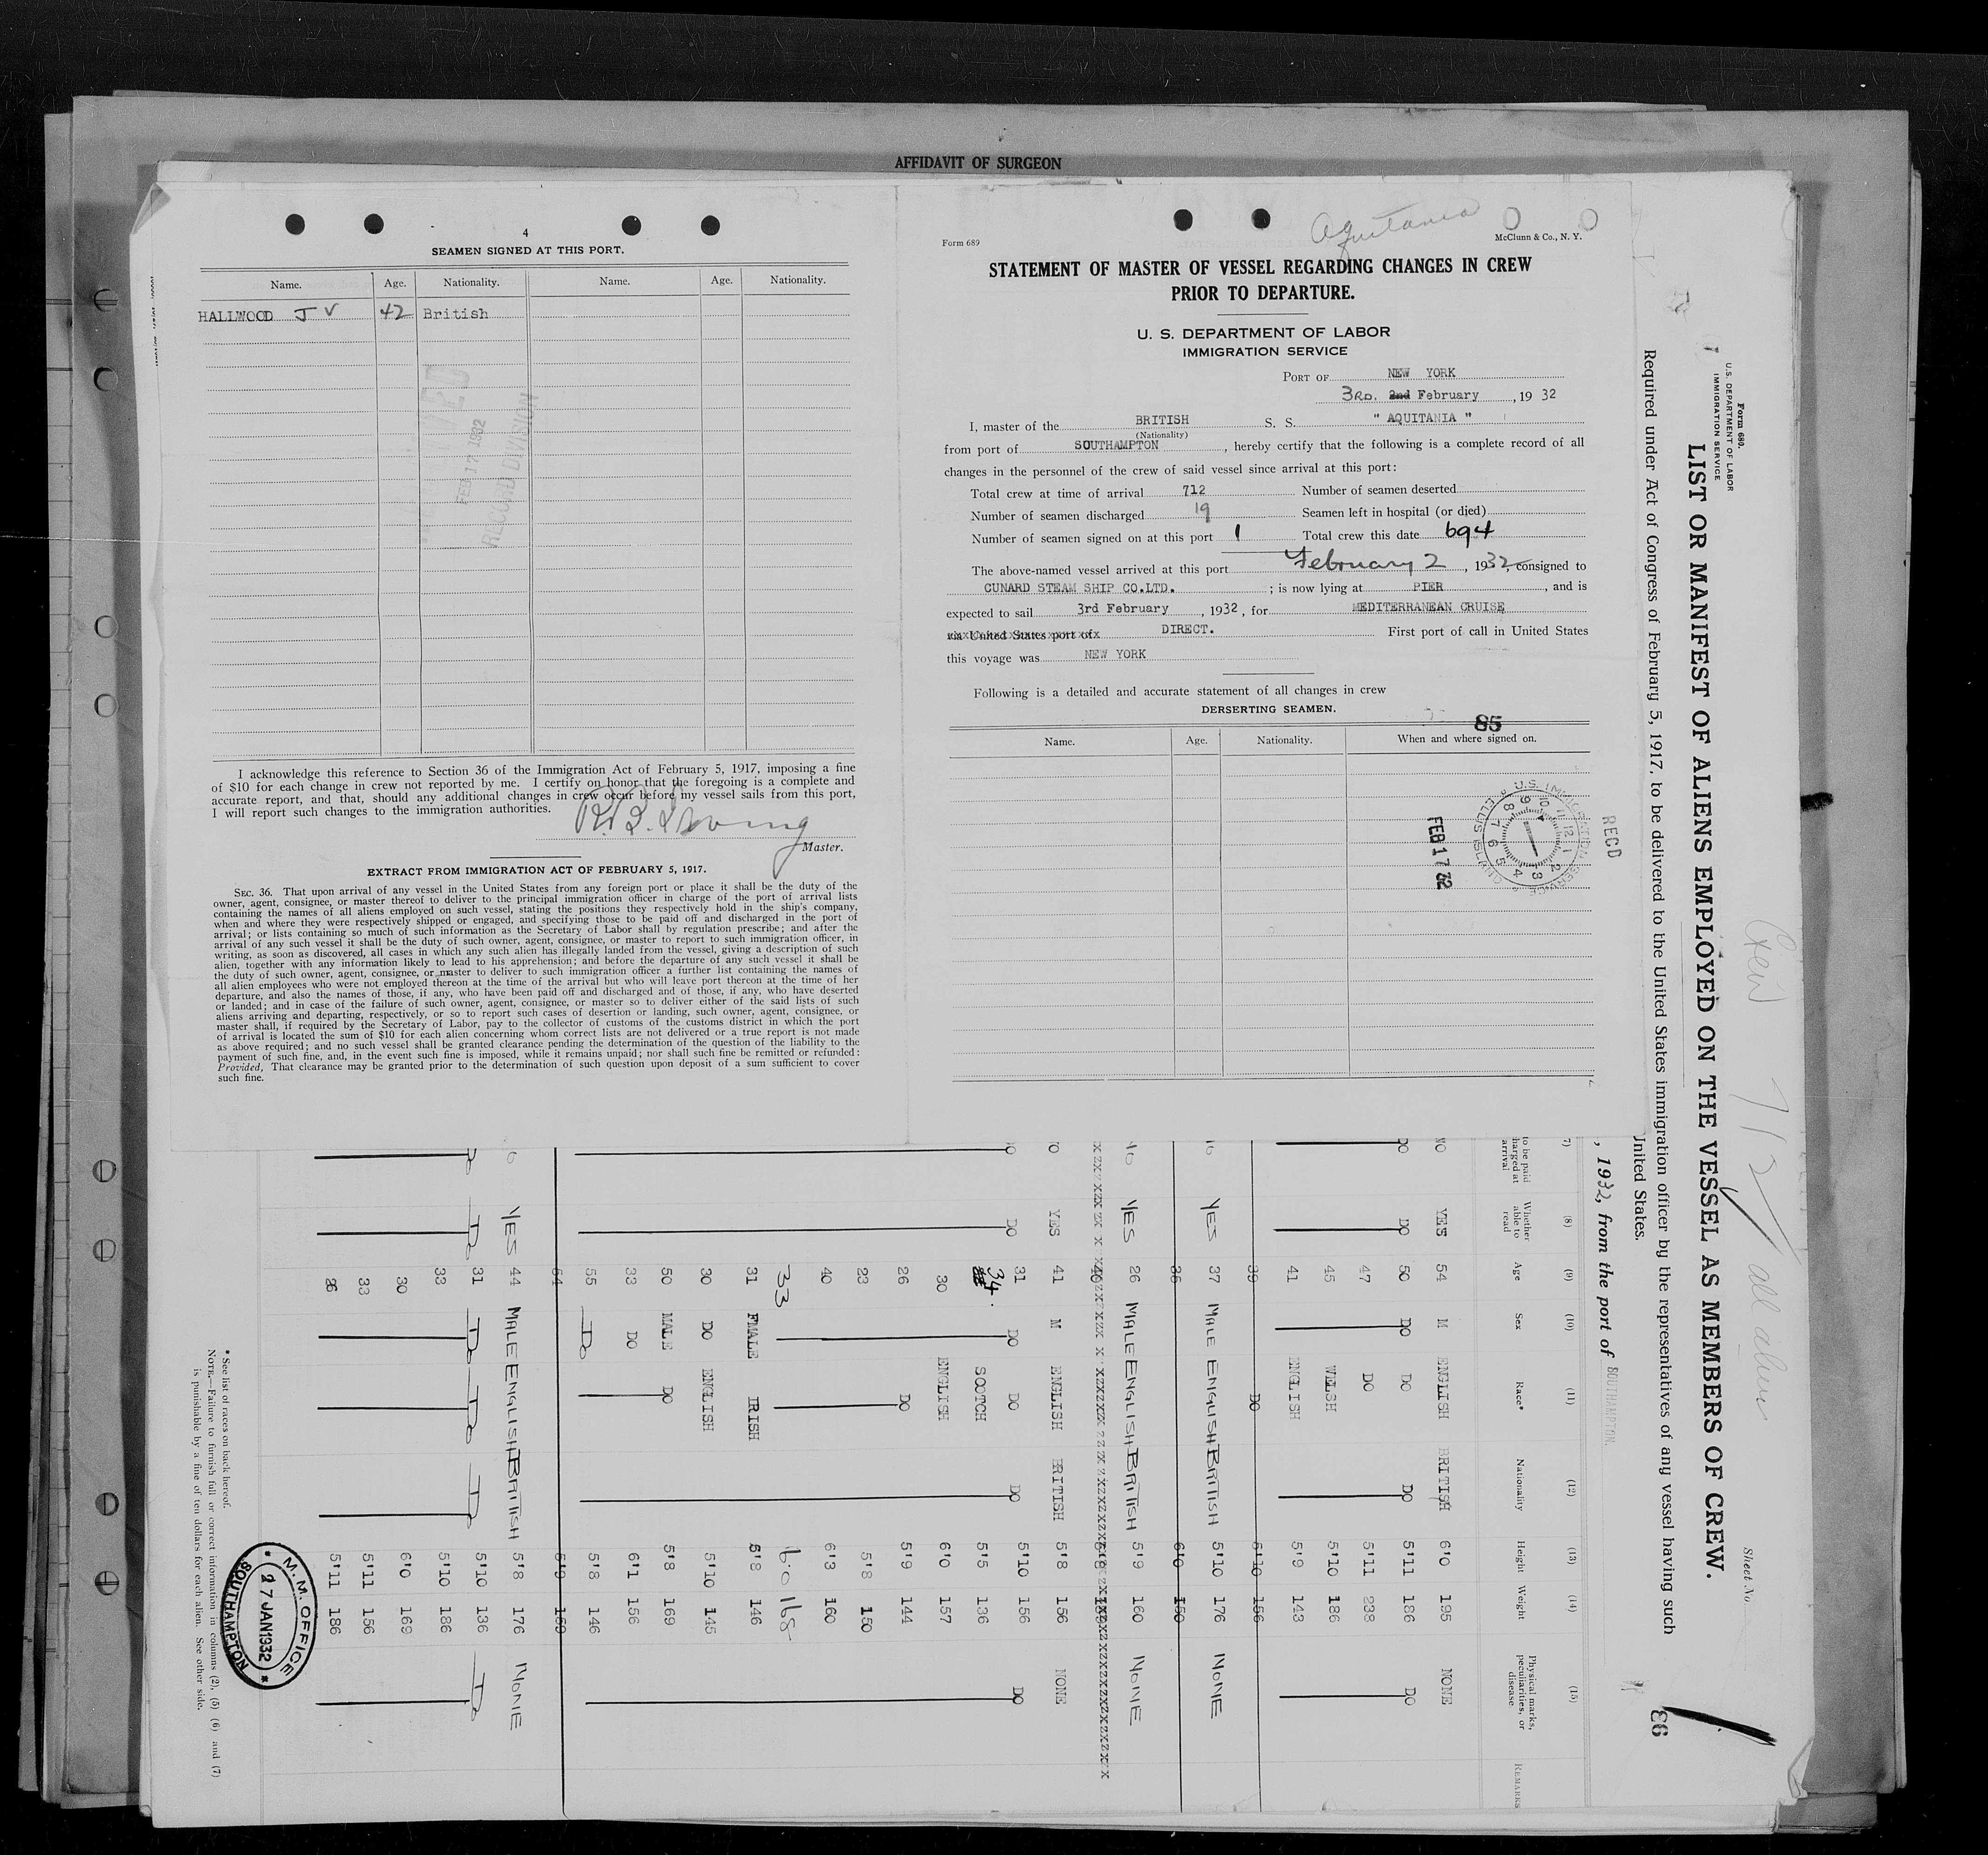 AFFIDAVIT OF SURGEON
4
SEAMEN SIGNED AT THIS PORT.
Name. Age. Nationality. Name. Age. Nationality.
HALLWOOD J V 42 British
RECORD DIVISION
FEB 17 1932
I acknowledge this reference to Section 36 of the Immigration Act of February 5, 1917, imposing a fine
of $10 for each change in crew not reported by me. I certify on honor that the foregoing is a complete and
accurate report, and that, should any additional changes in crew occur before my vessel sails from this port,
I will report such changes to the immigration authorities.
R.B. Irving
Master.
EXTRACT FROM IMMIGRATION ACT OF FEBRUARY 5, 1917.
SEC. 36. That upon arrival of any vessel in the United States from any foreign port or place it shall be the duty of the
owner, agent, consignee, or master thereof to deliver to the principal immigration officer in charge of the port of arrival lists
containing the names of all aliens employed on such vessel, stating the positions they respectively hold in the ship's company,
when and where they were respectively shipped or engaged, and specifying those to be paid off and discharged in the port of
arrival; or lists containing so much of such information as the Secretary of Labor shall by regulation prescribe; and after the
arrival of any such vessel it shall be the duty of such owner, agent, consignee, or master to report to such immigration officer, in
writing, as soon as discovered, all cases in which any such alien has illegally landed from the vessel, giving a description of such
alien, together with any information likely to lead to his apprehension; and before the departure of any such vessel it shall be
the duty of such owner, agent, consignee, or master to deliver to such immigration officer a further list containing the names of
all alien employees who were not employed thereon at the time of the arrival but who will leave port thereon at the time of her
departure, and also the names of those, if any, who have been paid off and discharged and of those, if any, who have deserted
or landed; and in case of the failure of such owner, agent, consignee, or master so to deliver either of the said lists of such
aliens arriving and departing, respectively, or so to report such cases of desertion or landing, such owner, agent, consignee, or
master shall, if required by the Secretary of Labor, pay to the collector of customs of the customs district in which the port
of arrival is located the sum of $10 for each alien concerning whom correct lists are not delivered or a true report is not made
as above required; and no such vessel shall be granted clearance pending the determination of the question of the liability to the
payment of such fine, and, in the event such fine is imposed, while it remains unpaid; nor shall such fine be remitted or refunded:
Provided, That clearance may be granted prior to the determination of such question upon deposit of a sum sufficient to cover
such fine.
Aquitania
Form 689 McClunn & Co., N. Y.
STATEMENT OF MASTER OF VESSEL REGARDING CHANGES IN CREW
PRIOR TO DEPARTURE.
U. S. DEPARTMENT OF LABOR
IMMIGRATION SERVICE
PORT OF NEW YORK
3RD. 2nd February, 19 32
I, master of the BRITISH S. S. " AQUITANIA "
(Nationality)
from port of SOUTHAMPTON, hereby certify that the following is a complete record of all
changes in the personnel of the crew of said vessel since arrival at this port:
Total crew at time of arrival 712 Number of seamen deserted
Number of seamen discharged 19 Seamen left in hospital (or died)
Number of seamen signed on at this port 1 Total crew this date 694
The above-named vessel arrived at this port February 2, 1932, consigned to
CUNARD STEAM SHIP CO.LTD.; is now lying at PIER, and is
expected to sail 3rd February, 1932, for MEDITERRANEAN CRUISE
via United States port of DIRECT. First port of call in United States
this voyage was NEW YORK
Following is a detailed and accurate statement of all changes in crew
DERSERTING SEAMEN.
85
Name. Age. Nationality. When and where signed on.
U.S. IMMIGRATION SERVICE ELLIS ISLAND
FEB 17 32
RECD
Form 680.
U.S. DEPARTMENT OF LABOR
IMMIGRATION SERVICE
LIST OR MANIFEST OF ALIENS EMPLOYED ON THE VESSEL AS MEMBERS OF CREW.
Required under Act of Congress of February 5, 1917, to be delivered to the United States immigration officer by the representatives of any vessel having such
United States.
, 1932, from the port of SOUTHAMPTON.
Sheet No.
712 all aliens
93
7) (8) (9) (10) (11) (12) (13) (14) (15)
to be paid
harged at
arrival
Whether
able to
read
Age Sex Race* Nationality Height Weight
Physical marks,
peculiarities, or
disease
REMARKS
NO YES 54 M ENGLISH BRITISH 6'0 195 NONE
DO DO 50 DO DO DO 5'11 186 DO
47 DO 5'11 238
45 WELSH 5'10 186
41 ENGLISH 5'9 143
39 DO 5'10 156
YES 37 MALE ENGLISH BRITISH 5'10 176 NONE
36 6'0 150
YES 26 MALE ENGLISH BRITISH 5'9 160 NONE
YES 41 M ENGLISH BRITISH 5'8 156 NONE
DO DO 31 DO DO DO 5'10 156 DO
34. SCOTCH 5'5 136
30 ENGLISH 6'0 157
26 DO 5'9 144
23 5'8 150
40 6'3 160
33 6'0 168
31 FMALE IRISH 5'8 146
30 DO ENGLISH 5'10 145
50 MALE DO 5'8 169
33 DO 6'1 156
55 Do 5'8 146
54 5'9 159
YES 44 MALE ENGLISH BRITISH 5'8 176 NONE
Do Do 31 Do Do Do 5'10 136 Do
33 5'10 186
30 6'0 169
33 5'11 156
26 5'11 186
* See list of races on back hereof.
NOTE.—Failure to furnish full or correct information in columns (2), (5) (6) and (7)
is punishable by a fine of ten dollars for each alien. See other side.
M. M. OFFICE
27 JAN 1932
SOUTHAMPTON